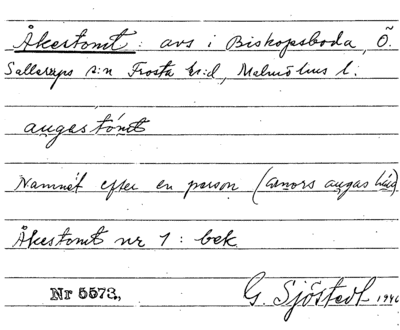 Åkestomt : avs i Biskopsboda, Ö.
Sallerups s:n Frosta hr:d, Malmöhus l:
augastomt
Namnet efter en person (
Åkestomt nr 1 : bek
Nr 5573, G. Sjöstedt 1946